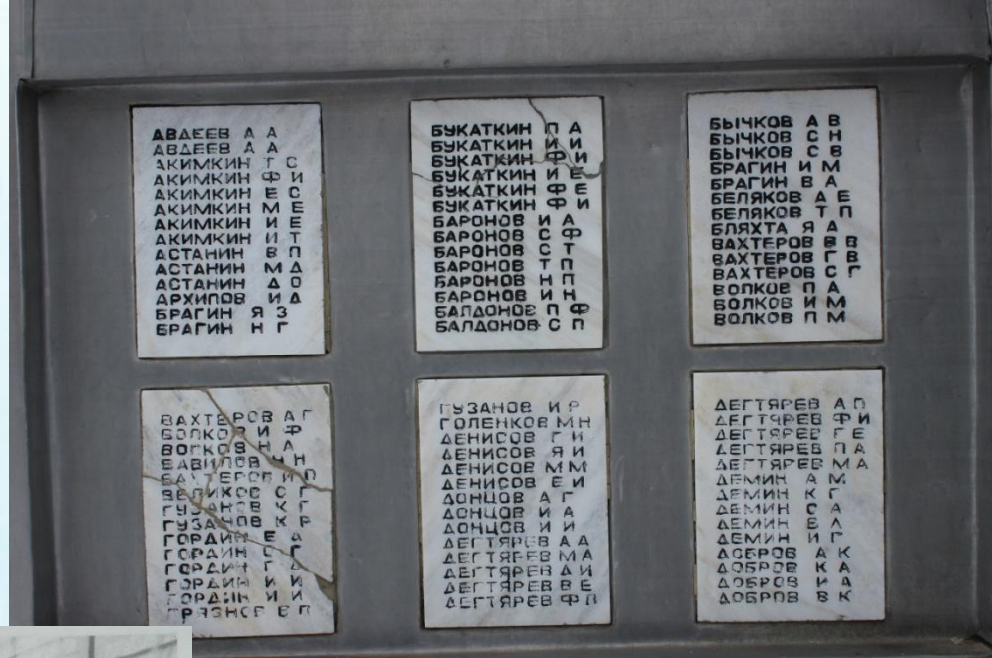 АВДЕЕВ А А
АВДЕЕВ А А
АКИМКИН Г С
АКИМКИН Ф И
АКИМКИН Е С
АКИМКИН М Е
АКИМКИН И Е
АКИМКИН И Т
АСТАНИН В П
АСТАНИН М Д
АСТАНИН Д О
АРХИПОВ И Д
БРАГИН Я З
БРАГИН Н Г
БУКАТКИН П А
БУКАТКИН И И
БУКАТКИН Ф И
БУКАТКИН И Е
БУКАТКИН Ф Е
БУКАТКИН Ф И
БАРОНОВ И А
БАРОНОВ С Ф
БАРОНОВ С Т
БАРОНОВ Т П
БАРОНОВ Н П
БАРОНОВ И Н
БАЛДОНОВ П Ф
БАЛДОНОВ С П
БЫЧКОВ А В
БЫЧКОВ С Н
БЫЧКОВ С В
БРАГИН И М
БРАГИН В А
БЕЛЯКОВ А Е
БЕЛЯКОВ Т П
БЛЯХТА Я А
ВАХТЕРОВ В В
ВАХТЕРОВ Г В
ВАХТЕРОВ С Г
ВОЛКОВ П А
ВОЛКОВ И М
ВОЛКОВ П М
ВАХТЕРОВ А Г
ВОЛКОВ И Ф
ВОЛКОВ Н А
ВАВИЛОВ Н
ВАХТЕРОВ И П
ВЕЛИКОВ С Г
ГУЗАНОВ К Г
ГУЗАНОВ К Р
ГОРДИН Е А
ГОРДИН С Г
ГОРДИН Г Д
ГОРДИН И И
ГОРДИН И И
ГРЯЗНОВ Е П
ГУЗАНОВ И Р
ГОЛЕНКОВ М Н
ДЕНИСОВ Г И
ДЕНИСОВ Я И
ДЕНИСОВ М М
ДЕНИСОВ Е И
ДОНЦОВ А Г
ДОНЦОВ И А
ДОНЦОВ И И
ДЕГТЯРЕВ А А
ДЕГТЯРЕВ М А
ДЕГТЯРЕВ Д И
ДЕГТЯРЕВ В Е
ДЕГТЯРЕВ Ф П
ДЕГТЯРЕВ А П
ДЕГТЯРЕВ Ф И
ДЕГТЯРЕВ Г Е
ДЕГТЯРЕВ П А
ДЕГТЯРЕВ М А
ДЕМИН А М
ДЕМИН К Г
ДЕМИН С А
ДЕМИН Е Л
ДЕМИН И Г
ДОБРОВ А К
ДОБРОВ К А
ДОБРОВ И А
ДОБРОВ В К